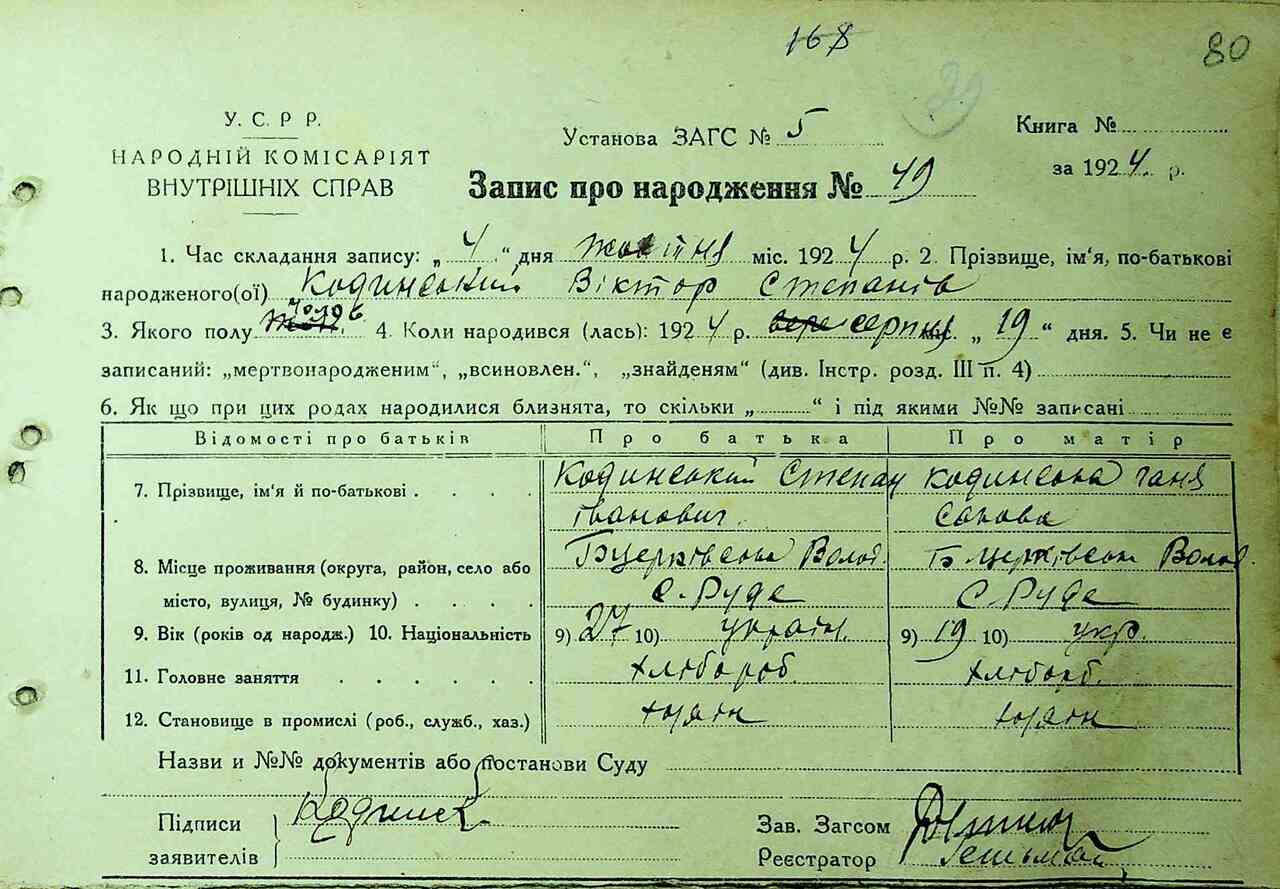 168
80
2
У. С. Р. Р.
НАРОДНІЙ КОМІСАРІЯТ
ВНУТРІШНІХ СПРАВ
Установа ЗАГС № 5
Книга №
за 1924 р.
Запис про народження № 49
1. Час складання запису: „4“ дня жовтня міс. 1924 р. 2. Прізвище, ім'я, по-батькові
народженого(ої) Кодинський Віктор Степанів
3. Якого полу чолов 4. Коли народився (лась): 1924 р. вере серпня „19“ дня. 5. Чи не є
записаний: „мертвонародженим“, „всиновлен.“, „знайденям“ (див. Інстр. розд. III п. 4)
6. Як що при цих родах народилися близнята, то скільки „ “ і під якими №№ записані
Відомості про батьків Про батька Про матір
7. Прізвище, ім'я й по-батькові Кодинський Степан Кодинсова Ганя
Іванович
8. Місце проживання (округа, район, село або Бцерківська Волот. Б церківськ Волот.
місто, вулиця, № будинку) С. Руде С. Руде
9. Вік (років од народж.) 10. Національність 9) 27 10) україн. 9) 19 10) укр.
11. Головне заняття хлібороб. хлібороб.
12. Становище в промислі (роб., служб., хаз.) хазяін хазяін
Назви и №№ документів або постанови Суду
Підписи
заявителів
Зав. Загсом
Реєстратор Гетьман